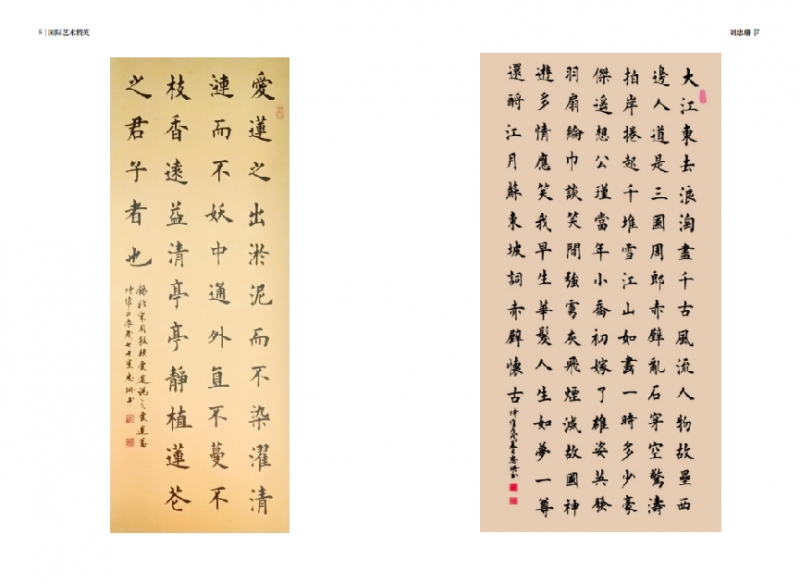 国际艺术精英
刘忠珊
愛蓮之出淤泥而不染濯清
漣而不妖中通外直不蔓不
枝香遠益清亭亭靜植蓮花
之君子者也
大江東去浪淘盡千古風流人物故壘西
邊人道是三國周郎赤壁亂石穿空驚濤
拍岸捲起千堆雪江山如畫一時多少豪
傑遙想公瑾當年小喬初嫁了雄姿英發
羽扇綸巾談笑間強虜灰飛煙滅故國神
遊多情應笑我早生華髮人生如夢一尊
還酹江月蘇東坡詞赤壁懷古